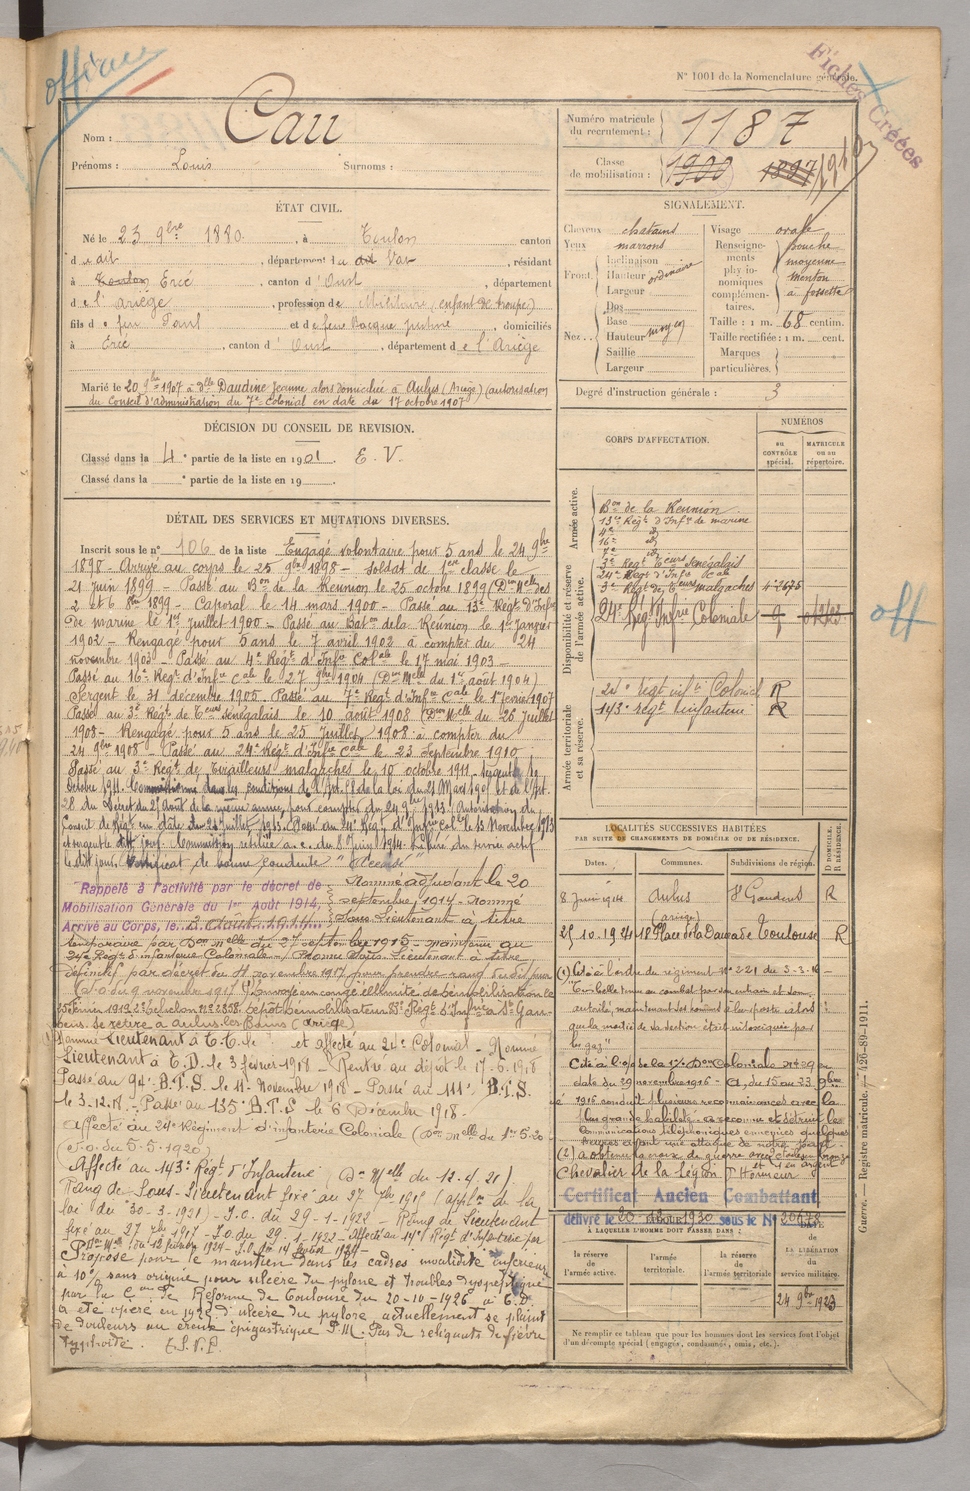 officier
N° 1001 de la Nomenclature générale.
Fiches Créées
Nom : Cau
Prénoms : Louis Surnoms :
Numéro matricule du recrutement : 1187
Classe de mobilisation : 1900 1897 1910
ÉTAT CIVIL.
Né le 23 9bre 1880, à Toulon canton
dudit, département du dit Var, résidant
à Toulon Ercé, canton d'Oust, département
de l'Ariège, profession de Militaire (enfant de troupe)
fils de feu Paul et de feue Bacque Justine, domiciliés
à Ercé, canton d'Oust, département de l'Ariège
Marié le 20 9bre 1907 à Dlle Daudine Jeanne alors domiciliée à Aulus (Ariège) (autorisation
du Conseil d'administration du 7e Colonial en date du 17 octobre 1907
SIGNALEMENT.
Cheveux chatains
Yeux marrons
Front. Inclinaison
Hauteur ordinaire
Largeur
Nez. Dos
Base
Hauteur moyen
Saillie
Largeur
Visage ovale
Renseignements physionomiques complémentaires. bouche moyenne menton à fossette
Taille : 1 m. 68 centim.
Taille rectifiée : 1 m. cent.
Marques particulières.
Degré d'instruction générale : 3
DÉCISION DU CONSEIL DE REVISION.
Classé dans la 4e partie de la liste en 1901. E. V.
Classé dans la e partie de la liste en 19 .
CORPS D'AFFECTATION.
NUMÉROS
au CONTRÔLE spécial.
MATRICULE ou au répertoire.
Armée active.
Bon de la Réunion
13e Régt d'Infie de marine
4e d°
16e d°
7e d°
3e Régt Teurs Sénégalais
24e Régt d'Infie Cale
3e Régt de Teurs malgaches 4-2675
Disponibilité et réserve de l'armée active.
24e Régt Infrie Coloniale
off
Armée territoriale et sa réserve.
24e régt inf. Colonial R
143e regt d'infanterie R
DÉTAIL DES SERVICES ET MUTATIONS DIVERSES.
Inscrit sous le n° 106 de la liste Engagé volontaire pour 5 ans le 24 9bre
1898 - Arrivé au corps le 25 9bre 1898 - Soldat de 1ere classe le
21 juin 1899 - Passé au Bon de la Réunion le 25 octobre 1899 (Don Mlle des
2 et 6 8bre 1899 - Caporal le 14 mars 1900 - Passé au 13e Régt d'Infie
de marine le 1er juillet 1900 - Passé au Baton de la Réunion le 1er janvier
1902 - Rengagé pour 5 ans le 7 avril 1902 à compter du 24
novembre 1903 - Passé au 4e Régt d'Infie Colale le 17 mai 1903 -
Passé au 16e Régt d'Infie Cale le 27 9bre 1904 (Don Mlle du 1er août 1904)
Sergent le 31 décembre 1905. Passé au 7e Régt d'Infie Cale le 1er février 1907
Passé au 3e Régt de Teurs Sénégalais le 10 août 1908 (Don Mlle du 25 Juillet
1908 - Rengagé pour 5 ans le 25 Juillet 1908 à compter du
24 9bre 1908 - Passé au 24e Régt d'Infie Cale le 23 Septembre 1910
Passé au 3e Régt de Tirailleurs malgaches le 10 octobre 1911. Sergent le
octobre 1911. Commissionné dans les conditions de l'Art. 58 de la loi du 21 Mars 1905 et de l'Art.
28 du Décret du 27 août de la même année, pour compter du 24 9bre 1913. Autorisation du
Conseil de Régt en date du 24 juillet 1913. Passé au 24e Régt d'Infie Colle le 13 Novembre 1913
et sergent le dit jour. Commission retirée a.c. du 8 juin 1914. Libéré du service actif
le dit jour. Certificat de bonne conduite "Accordé"
Rappelé à l'activité par le décret de
Mobilisation Générale du 1er Août 1914,
Arrivé au Corps, le 2 Août 1914
Nommé adjudant le 20
septembre 1914 - Nommé
Sous Lieutenant à titre
temporaire par Don melle du 27 septembre 1915 - maintenu au
24e Régt d'infanterie Coloniale - Promu Sous-Lieutenant à titre
définitif par décret du 11 novembre 1917 pour prendre rang du dit jour
Envoyé en congé illimité de démobilisation le
25 février 1919
Se retire à Aulus les Bains (Ariège)
Nommé Lieutenant à T.T. le et affecté au 24e Colonial - Nommé
Lieutenant à T.D. le 3 février 1918 - Rentré au dépôt le 17-6-1918
Passé au 94e B.T.S. le 11 Novembre 1918 - Passé au 111e B.T.S
le 3.12.18. - Passé au 135e B.T.S le 6 Décembre 1918 -
Affecté au 24e Régiment d'infanterie Coloniale (Don melle du 1er 5.20
(J.o. du 5-5-1920)
(Affecté au 143e Régt d'Infanterie (Don Melle du 12.4.21)
Rang de Sous-Lieutenant fixé au 27 7bre 1915 (applon de la
loi du 30-3-1921) - J.o. du 29-1-1922 - Rang de Lieutenant
fixé au 27 7bre 1917 - J.o. du 29-1-1922 - Affecté au 14e Régt d'Infanterie par
Don Melle du 12 février 1924 - J.O. du 14 février 1924 -
Proposé pour le maintien dans les cadres invalidité inférieure
à 10% sans origine pour ulcère du pylore et troubles dyspeptiques
par la Con de Réforme de Toulouse du 20-10-1926, à T.D.
a été opéré en 1925 d'ulcère du pylore actuellement se plaint
de douleurs au creux épigastrique P.M. Pas de reliquats de fièvre
typhoïde. E.S.N.P.
LOCALITÉS SUCCESSIVES HABITÉES
PAR SUITE DE CHANGEMENTS DE DOMICILE OU DE RÉSIDENCE.
Dates. Communes. Subdivisions de région. D DOMICILE. R RÉSIDENCE.
8 Juin 1914 Aulus (Ariège) St Gaudens R
25.10.1921 18 Place de la Daurade Toulouse R
(1) Cité à l'ordre du régiment N° 221 du 3-3-16
autorité, maintenant ses hommes à leur poste alors
que la moitié de sa section était intoxiquée par
les gaz"
date du 29 novembre 1916 - a, du 15 au 23 9bre
1916 conduit plusieurs reconnaissances avec la
plus grande habileté, a reconnu et détruit les
communications téléphoniques ennemies quelques
heures avant une attaque de notre part -
(2) a obtenu la croix de guerre avec étoiles en bronze et 1 en argent
Chevalier de la Légion d'Honneur
Certificat Ancien Combattant
délivré le 20 AOUT 1930 sous le N° 20978
À LAQUELLE L'HOMME DOIT PASSER DANS :
la réserve de l'armée active.
l'armée territoriale.
la réserve de l'armée territoriale
DATE DE LA LIBÉRATION du service militaire.
24 9bre 1923
Ne remplir ce tableau que pour les hommes dont les services font l'objet
d'un décompte spécial (engagés, condamnés, omis, etc.).
Guerre. — Registre matricule. — 426-89-1911.